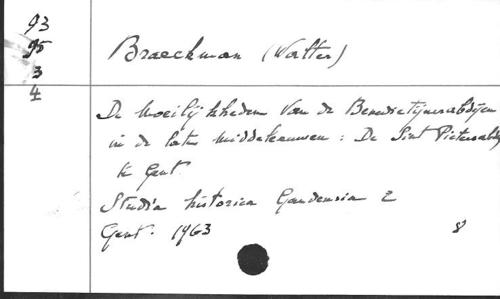 93
95
3
4
Braeckman (Walter)
De moeilijkheden van de Benedictijnerabdijen
in de late middeleeuwen: De Sint Pietersabdij
te Gent
Studia historica Gandensia 2
Gent. 1963
8